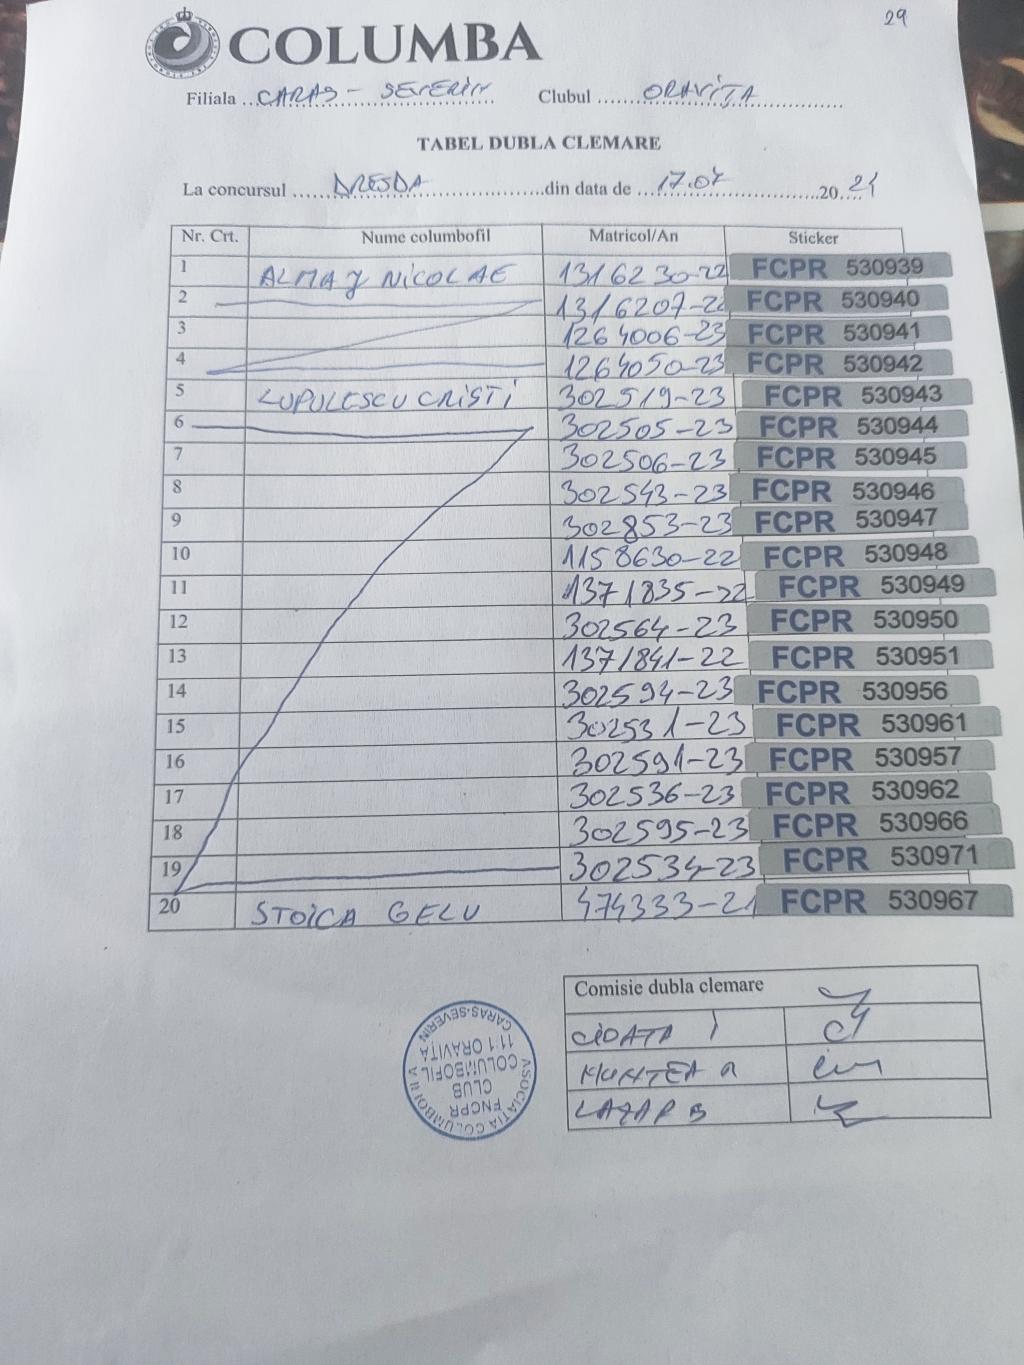 29
COLUMBA
Filiala CARAS - SEVERIN Clubul ORAVIȚA
TABEL DUBLA CLEMARE
La concursul DRESDA din data de 17.07 2024
Nr. Crt. Nume columbofil Matricol/An Sticker
1 ALMAY NICOLAE 1316230-22 FCPR 530939
2 1316207-22 FCPR 530940
3 1264006-23 FCPR 530941
4 1264050-23 FCPR 530942
5 LUPULESCU CRISTI 302519-23 FCPR 530943
6 302505-23 FCPR 530944
7 302506-23 FCPR 530945
8 302543-23 FCPR 530946
9 302853-23 FCPR 530947
10 1158630-22 FCPR 530948
11 1371835-22 FCPR 530949
12 302564-23 FCPR 530950
13 1371841-22 FCPR 530951
14 302594-23 FCPR 530956
15 302531-23 FCPR 530961
16 302591-23 FCPR 530957
17 302536-23 FCPR 530962
18 302595-23 FCPR 530966
19 302534-23 FCPR 530971
20 STOICA GELU 474333-21 FCPR 530967
Comisie dubla clemare
CIOATA I
MUNTEA R
LAZAR B
ASOCIATIA COLUMBOFILA
FNCPR
CLUB
COLUMBOFIL
111 ORAVITA
CARAS-SEVERIN